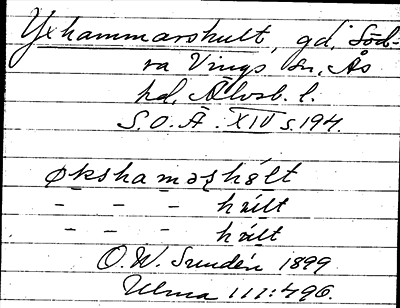 Yxhammarshult, gd, Söd-
ra Vings sn, Ås
hd, Älvsb. l.
S.O.Ä. XIV s. 194.
økshamaʂhəlt
- - - hult
- - - hult
O.W. Sundén 1899
Ulma 111:496.